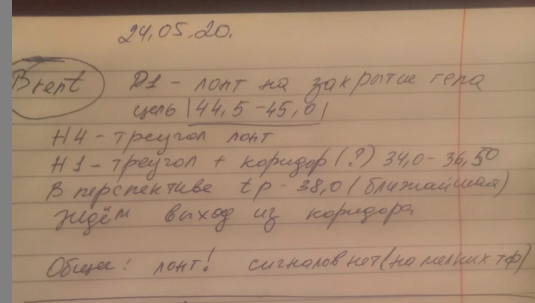 24.05.20.
Brent D1 - лонг на закрытие гепа
цель |44,5-45,0|
H4 - треугол лонг
H1 - треугол + коридор (?) 34,0 - 36,50
В перспективе tp - 38,0 (ближайшая)
Ждём выход из коридора
Общее: лонг! сигналов нет (на мелких тф)